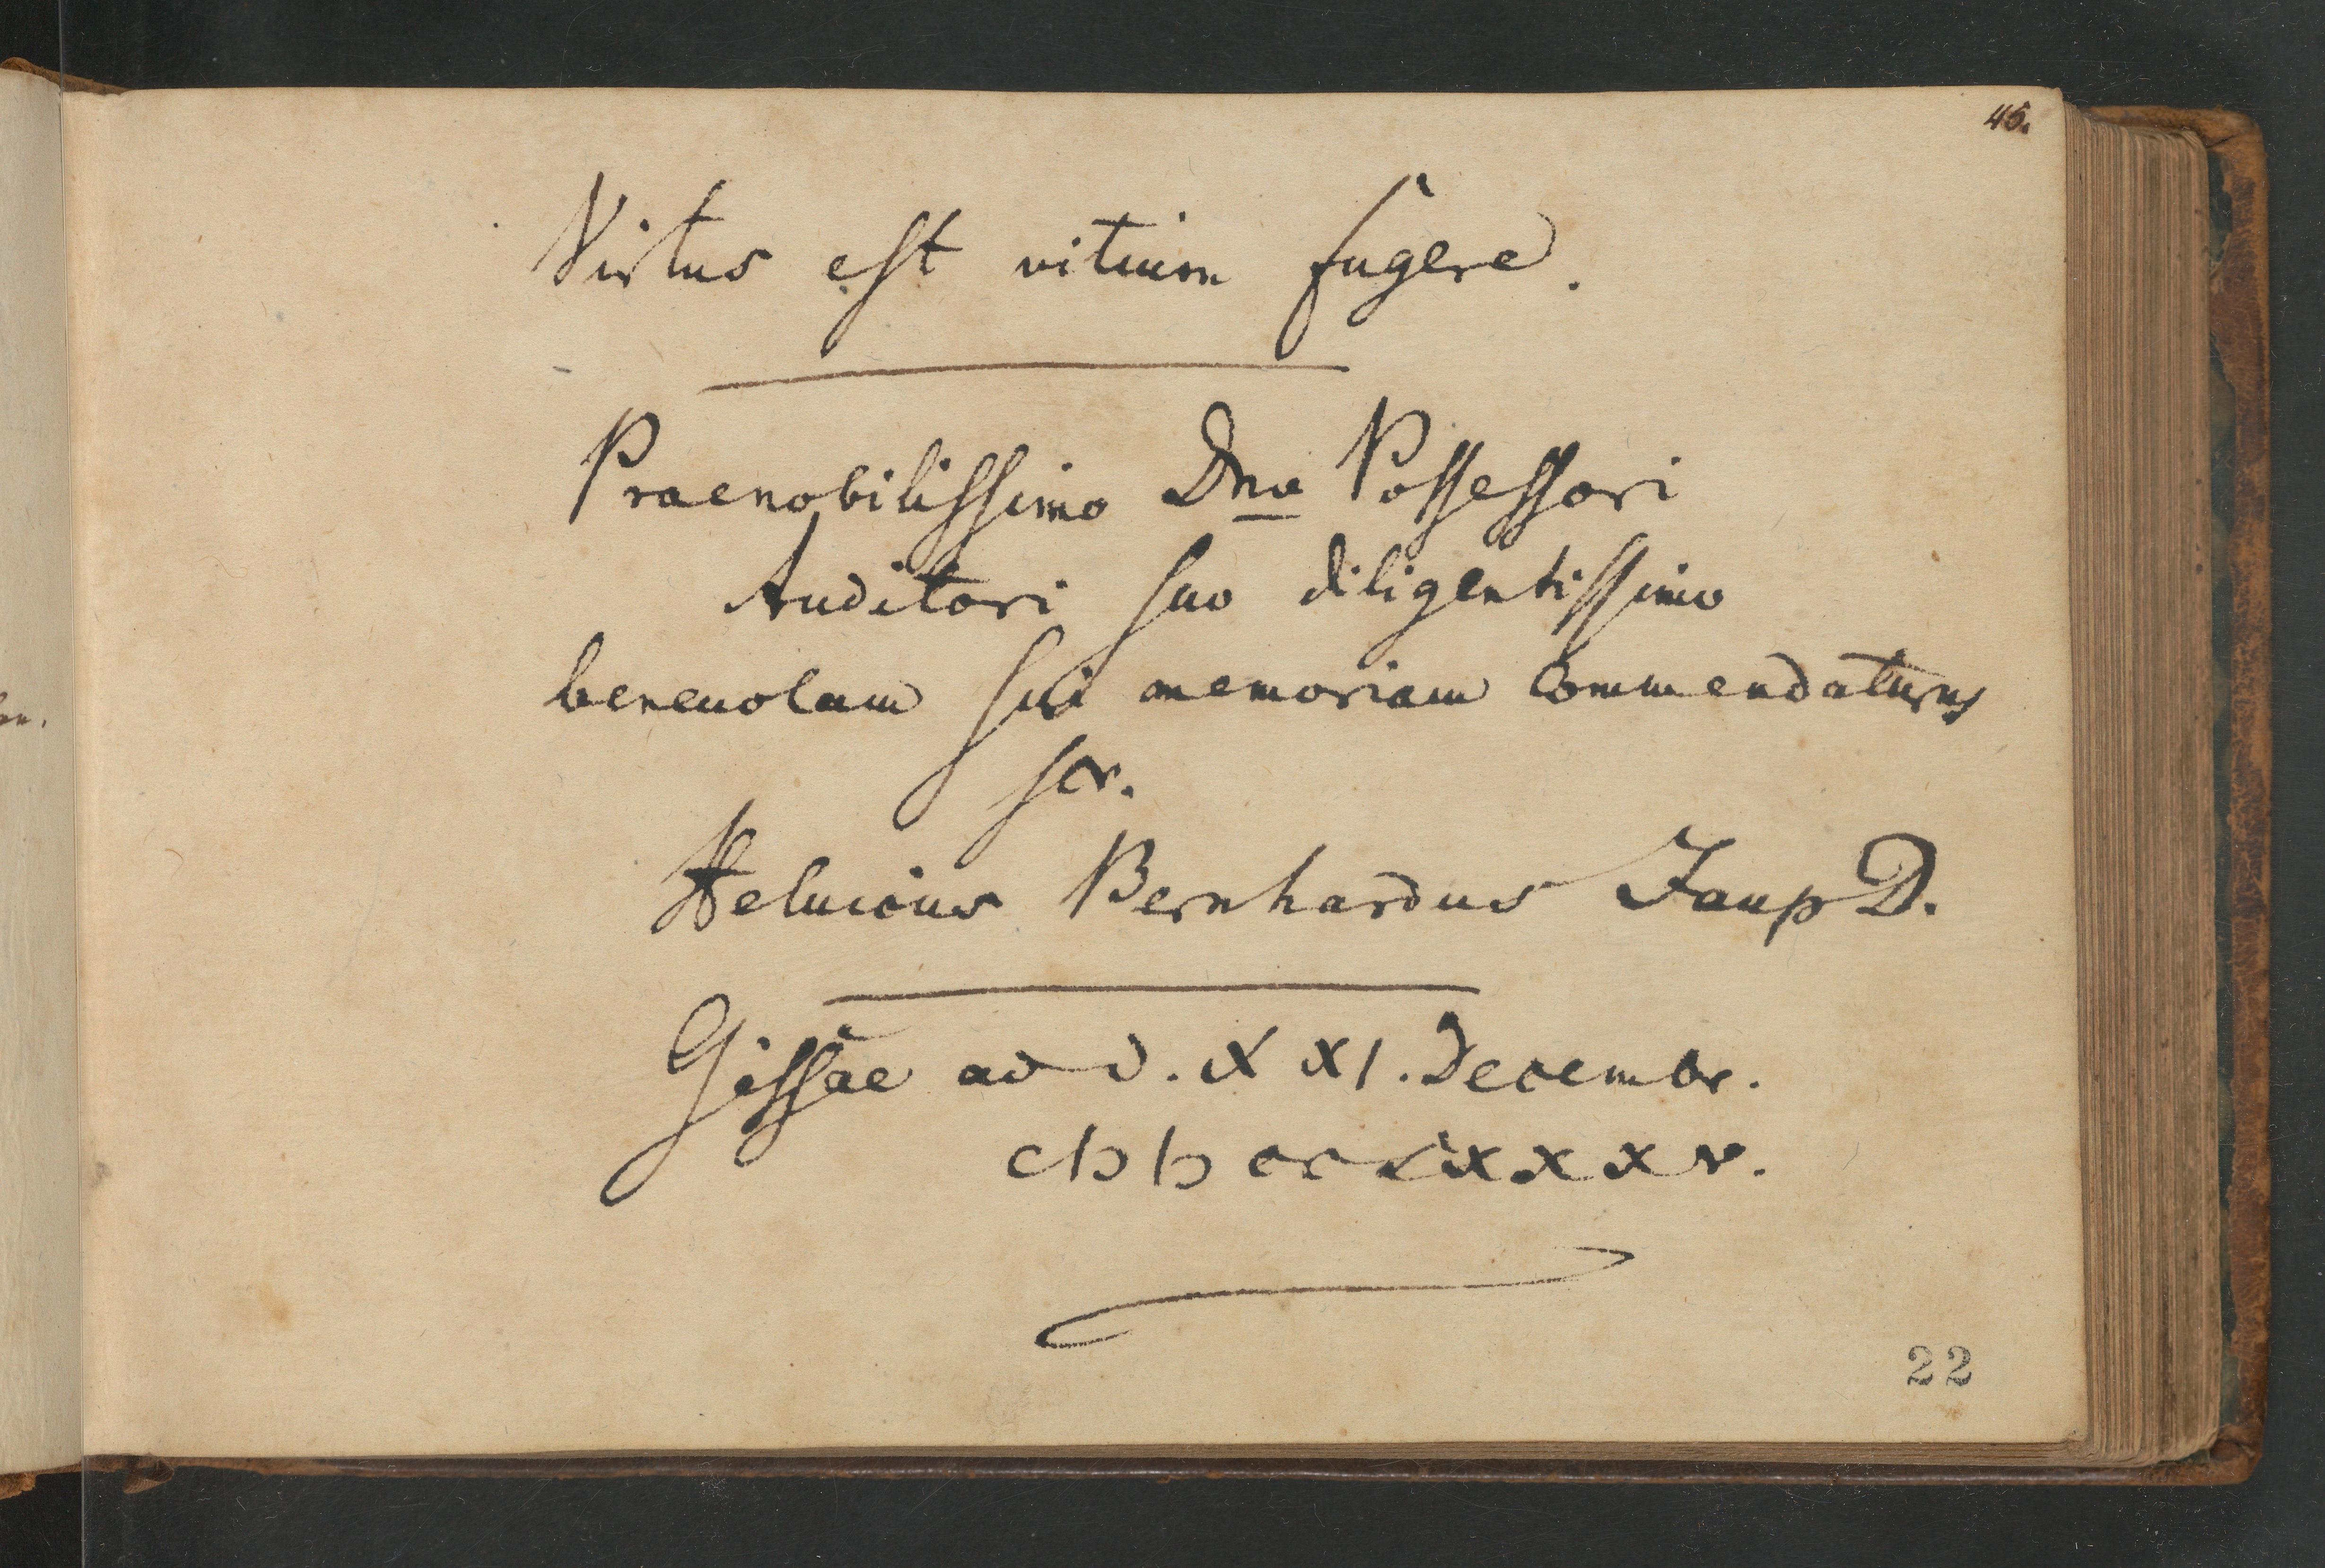 45.
Virtus est vitium fugere.
Praenobilissimo Dno Possessori
Auditori suo diligentissimo
beneuolam sui memoriam commendaturus
scr.
Heluicius Bernhardus Jaup D.
Gissae ad d. XXI. Decembr.
cIↄ Iↄ cc LXXXV.
22